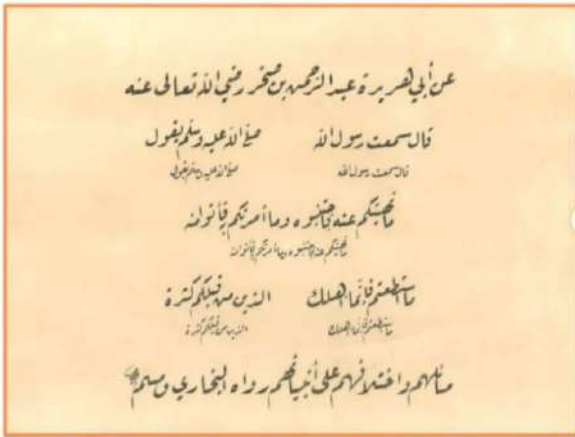 عن أبي هريرة عبد الرحمن بن صخر رضي الله تعالى عنه
قال سمعت رسول الله صلى الله عليه وسلم يقول
قال سمعت رسول الله صلى الله عليه وسلم يقول
ما نهيتكم عنه فاجتنبوه وما أمرتكم به فأتوا منه
ما نهيتكم عنه فاجتنبوه وما أمرتكم به فأتوا منه
ما استطعتم فإنما اهلك الذين من قبلكم كثرة
ما استطعتم فإنما اهلك الذين من قبلكم كثرة
مسائلهم واختلافهم على أنبيائهم رواه البخاري ومسلم